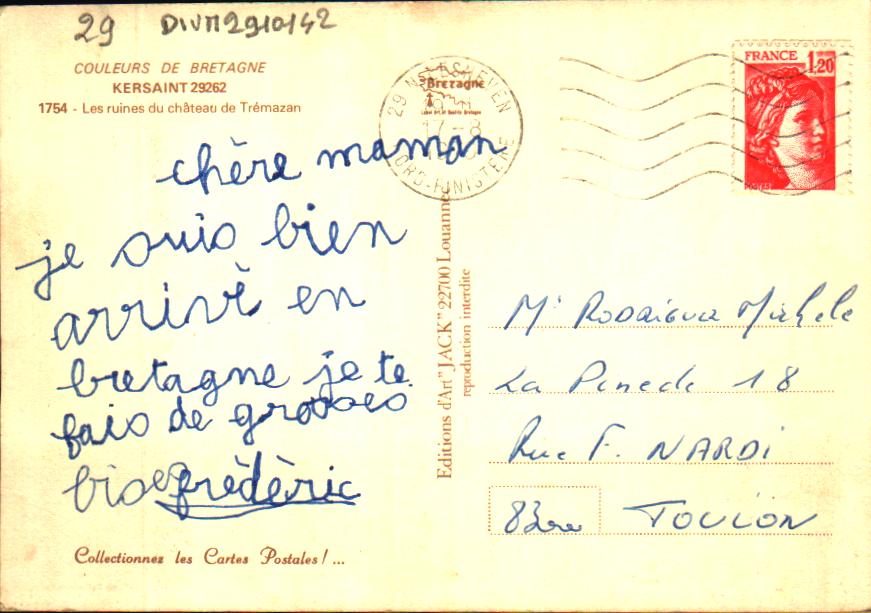 29 DIVM2910142
COULEURS DE BRETAGNE
KERSAINT 29262
1754 - Les ruines du château de Trémazan
Bretagne
17-8
FRANCE 1,20
chère maman
je suis bien
arrivè en
bretagne je te
fais de grosses
bises frèdèric
Collectionnez les Cartes Postales ! ...
Editions d'Art "JACK" 22700 Louannec
reproduction interdite
Mr Rodriguez Michele
La Pinede 18
Rue F. NARDI
83000 TOULON